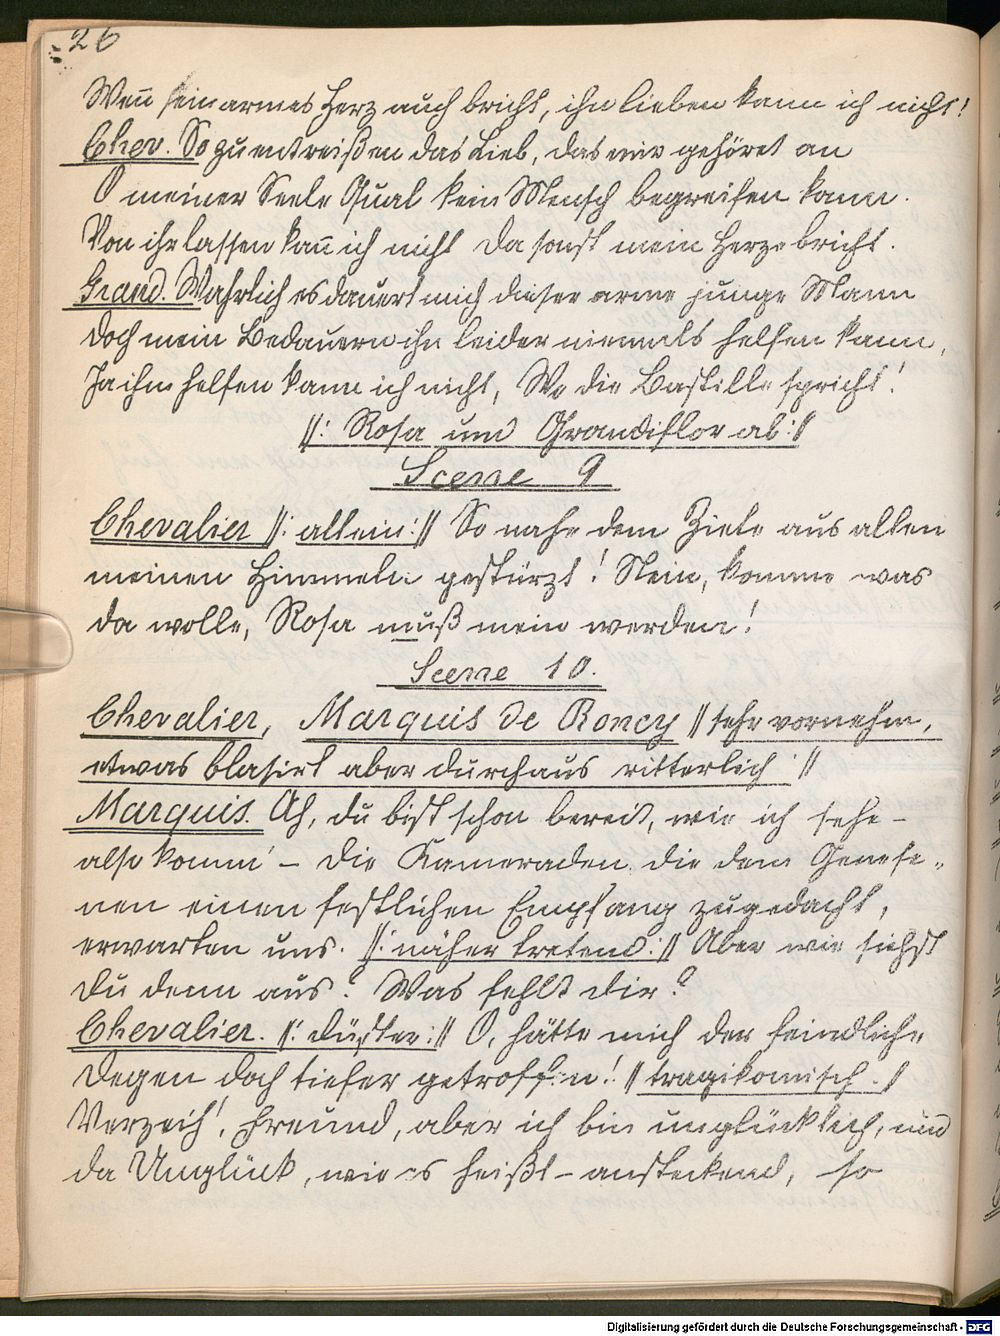 26
Weñ sein armes Herz auch bricht, ihn lieben kann ich nicht!
Chev. So zu entreißen das Lieb, das mir gehöret an
O meiner Seele Qual kein Mensch begreifen kann.
Von ihr lassen kañ ich nicht da sonst mein Herze bricht.
Grand. Wahrlich es dauert mich dieser arme junge Mann
Doch mein Bedauern ihn leider niemals helfen kann,
Ja ihm helfen kann ich nicht, Wo die Bastille spricht!
//: Rosa und Grandiflor ab ://
Scene 9
Chevalier //: allein :// So nahe dem Ziele aus allen
meinen Himmeln gestürzt! Nein, komme was
da wolle, Rosa muß mein werden!
Scene 10.
Chevalier, Marquis de Roncy // sehr vornehm,
etwas blasirt aber durchaus ritterlich ://
Marquis. Ah, du bist schon bereit, wie ich sehe –
also komm' – Die Kameraden, die dem Genese-
nen einen festlichen Empfang zugedacht,
erwarten uns. //: näher tretend :// Aber wie siehst
du denn aus? Was fehlt dir?
Chevalier. //: düster :// O, hätte mich der feindliche
Degen doch tiefer getroffen! // tragikomisch. //
Verzeih', Freund, aber ich bin unglücklich, und
da Unglück, wie es heißt – ansteckend, so
Digitalisierung gefördert durch die Deutsche Forschungsgemeinschaft - DFG